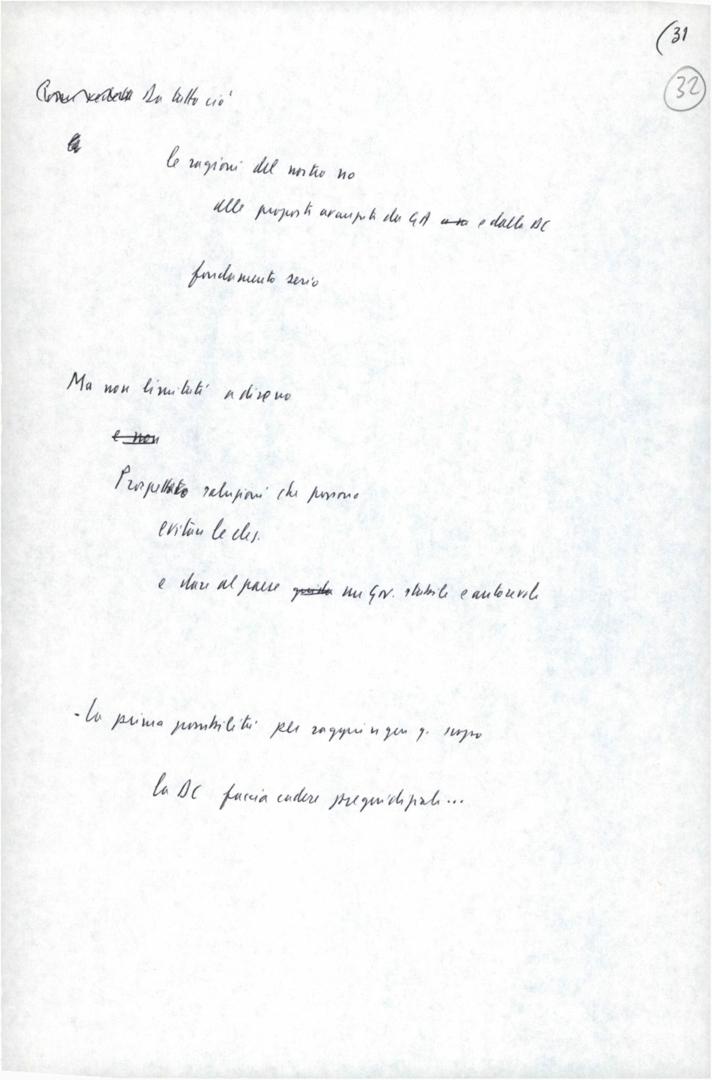 (31
32
Da tutto ciò
le ragioni del nostro no
alle proposte avanzate da GA e dalla DC
fondamento serio
Ma non limitati a dire no
e non
Prospettato soluzioni che possono
evitare le elez.
e dare al paese un Gov. stabile e autorevole
- La prima possibilità per raggiungere q. scopo
la DC faccia cadere pregiudiziale...